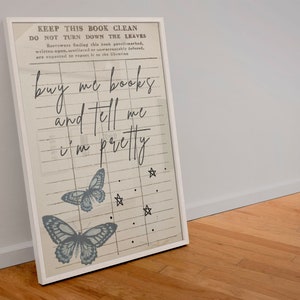 KEEP THIS BOOK CLEAN
DO NOT TURN DOWN THE LEAVES
Borrowers finding this book pencil-marked,
written upon, mutilated or unwarrantably defaced,
are requested to report it to the librarian
buy me books
and tell me
i'm pretty